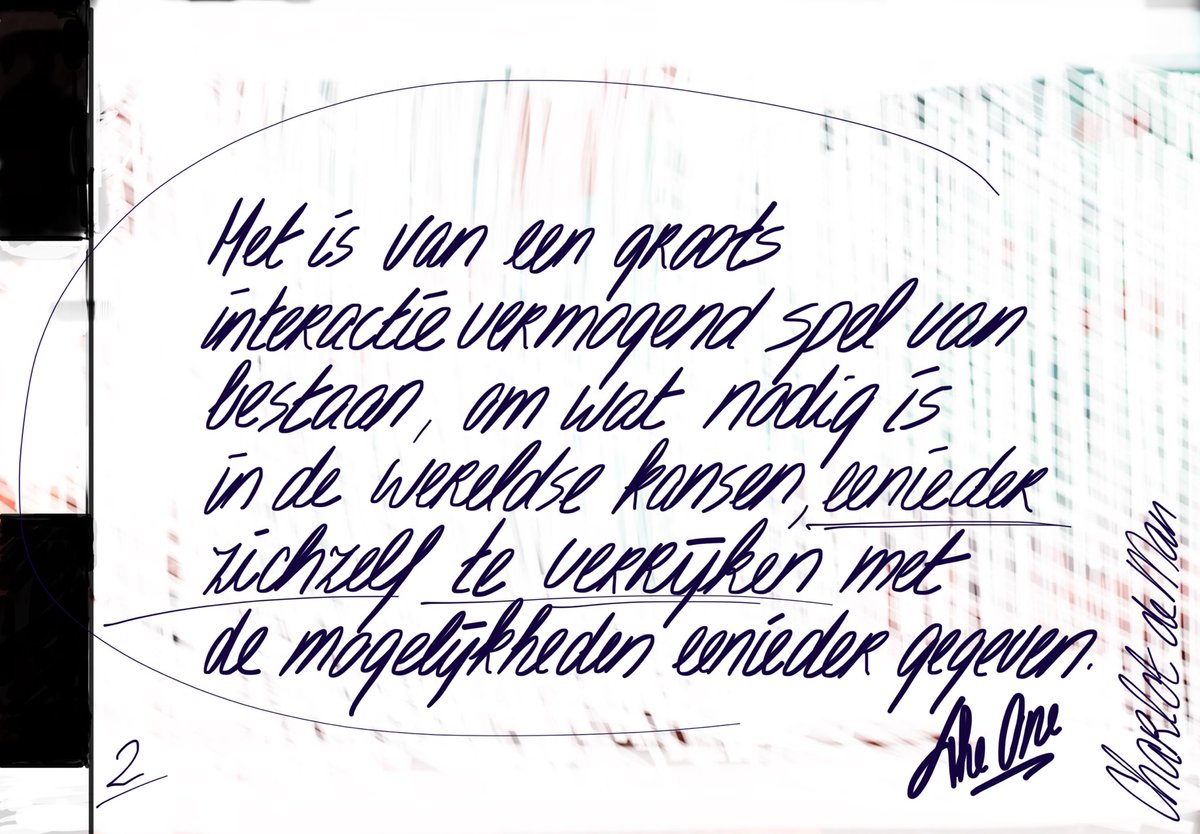 Het is van een groots
interactievermogend spel van
bestaan, om wat nodig is
in de wereldse kansen, eenieder
zichzelf te verrijken met
de mogelijkheden eenieder gegeven.
The One
Charlot de Man
2